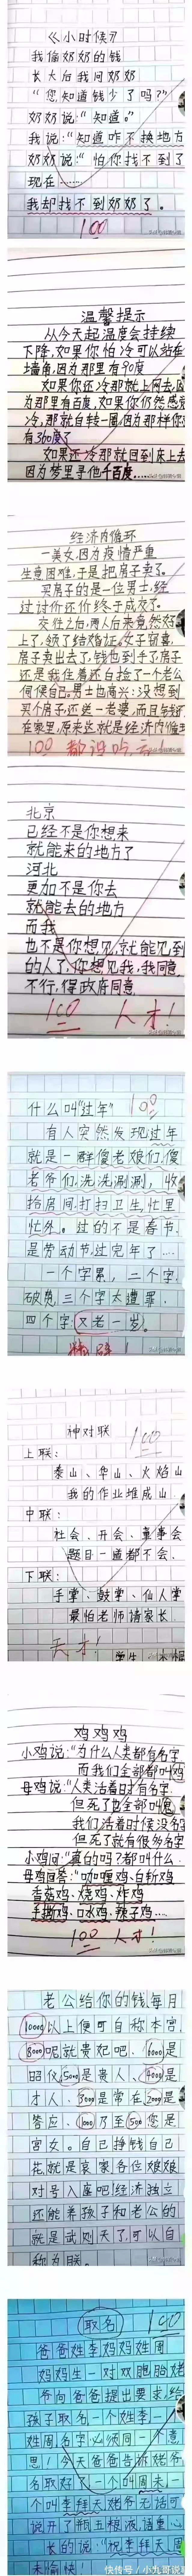 《小时候》
我偷奶奶的钱
长大后我问奶奶
“您知道钱少了吗？”
奶奶说：“知道。”
我说：“知道咋不换地方
奶奶说：“怕你找不到了
现在……
我却找不到奶奶了。
100
温馨提示
从今天起温度会持续
下降,如果你怕冷可以站在
墙角,因为那里有90度
如果你还冷那就上网去,因
为那里有百度,如果你仍然感觉
冷,那就自转一圈,因为那样你
有360度了
如果你还冷那就回到床上去
因为梦里寻他千百度……
经济内循环
一美女因为疫情严重
生意困难,于是把房子卖了。
买房子的是一位男士,经
过讨价还价终于成交。
交往之后,两人后来竟然好
上了,领了结婚证。女子窃喜:
房子卖出去了,钱也到手了,房子
还是我住着,还白捡了一个老公
伺候自己。男士也高兴:没想到
买个房子,还送一老婆,而且钱还
在家里,原来这就是经济内循环
100
北京
已经不是你想来
就能来的地方了
河北
更加不是你去
就能去的地方
而我
也不是你想见,就能见到
的人了,你想见我,我同意
不行,得政府同意
100 人才!
什么叫“过年” 100
有人突然发现过年
就是一群傻老娘们,傻
老爷们,洗洗涮涮,收
拾房间,打扫卫生,忙里
忙外。过的不是春节,
是劳动节,过完年了…
一个字累,二个字,
破费,三个字太遭罪,
四个字:又老一岁。
神对联 100
上联:
泰山、华山、火焰山
我的作业堆成山.
中联:
社会、开会、董事会
题目一道都不会.
下联:
手掌、鼓掌、仙人掌
最怕老师请家长.
天才!
鸡鸡鸡
小鸡说:“为什么人类都有名字
而我们全部都叫鸡
母鸡说:“人类活着时有名字
但死了也全部叫鬼
我们活着时候没名
但死了就有很多名字
小鸡问:“真的吗?都叫什么
母鸡回答:“咖喱鸡.白斩鸡
香菇鸡.烧鸡.炸鸡
手撕鸡.口水鸡.辣子鸡……
100 人才!
老公给你的钱每月
10000以上便可自称本宫,
8000呢就贵妃吧、6000是
昭仪,5000是贵人、4000是
才人、3000是常在,2000是
答应、1000乃至500您是
宫女。自己挣钱自己
花就是哀家各位娘娘
对号入座吧!经济独立
还能养孩子和老公的
就是武则天了,可以自
称为朕。
取名 100
爸爸姓李妈妈姓周
妈妈生一对双胞胎姥
爷向爸爸提出要求:给
孩子取名一个姓李一个
姓周名字必须同一个意
思!今天爸爸告诉姥爷
名取好了一个叫周末一
个叫李拜天姥爷无话可
说开了瓶五粮液,语重心
长的说:“祝李拜天周
末愉快!”
快传号 / 小九哥说